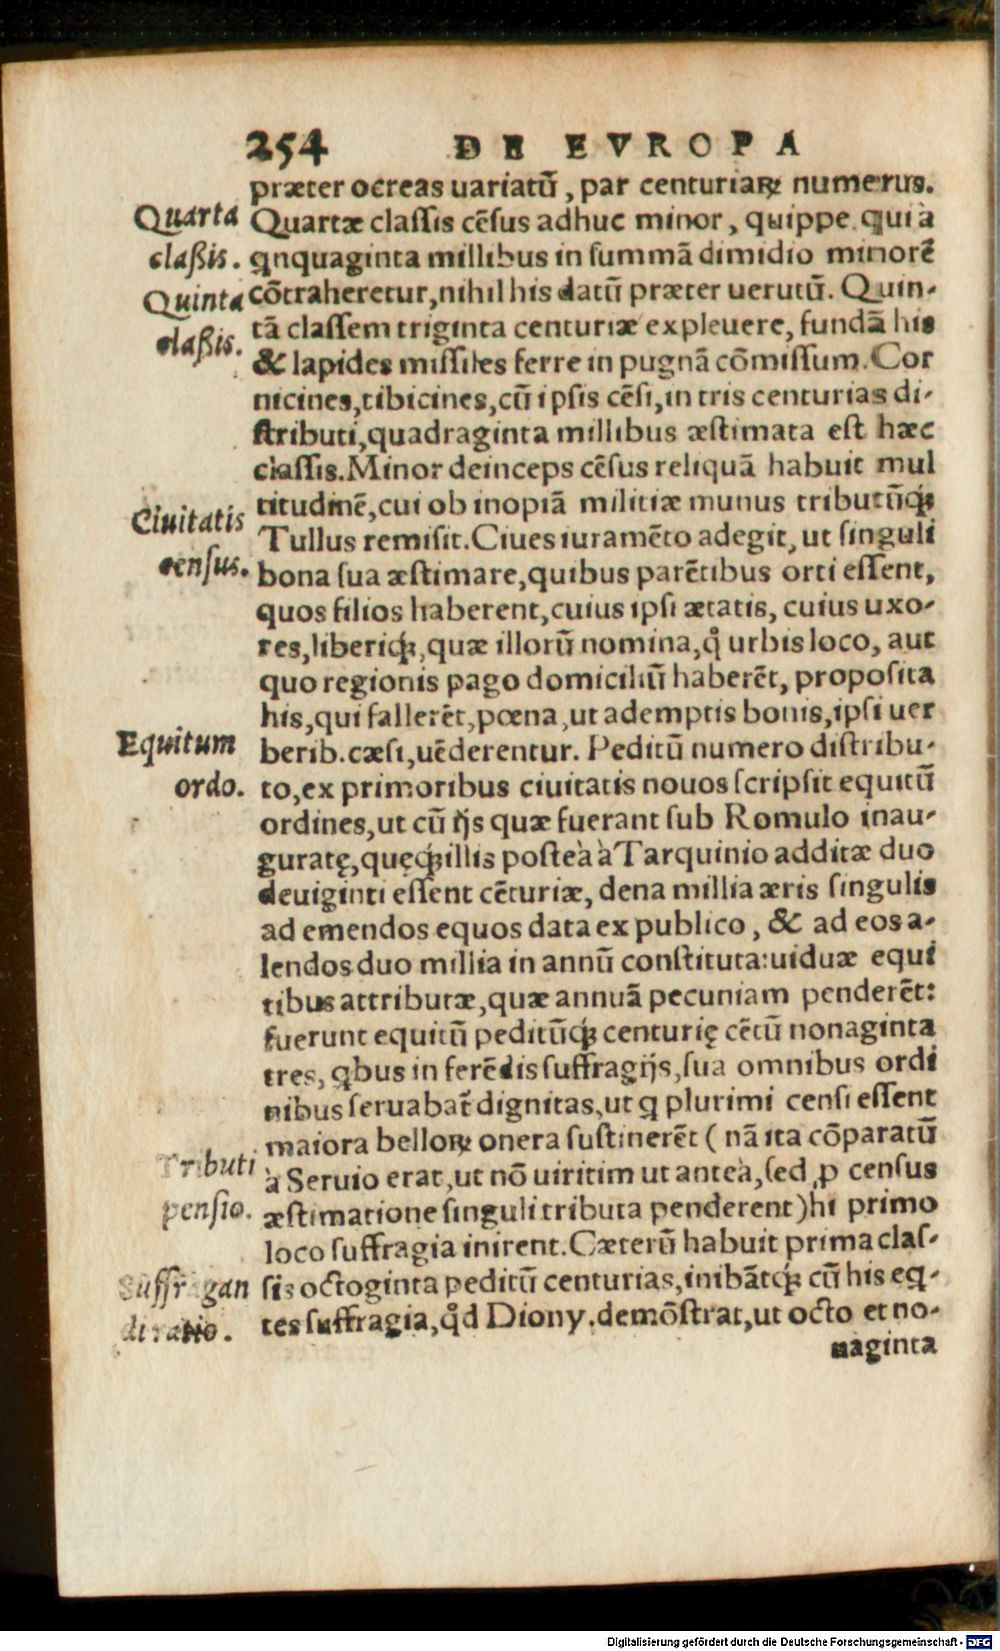 254 DE EVROPA
præter ocreas uariatũ, par centuriaꝝ numerus.
Quarta
claßis.
Quartæ claſſis cẽſus adhuc minor, quippe qui à
qnquaginta millibus in ſummã dimidio minorẽ
Quinta
claßis.
cõtraheretur, nihil his datũ præter uerutũ. Quin-
tã claſſem triginta centuriæ expleuere, fundã his
& lapides miſſiles ferre in pugnã cõmiſſum. Cor
nicines, tibicines, cũ ipſis cẽſi, in tris centurias di-
ſtributi, quadraginta millibus æſtimata eſt hæc
claſſis. Minor deinceps cẽſus reliquã habuit mul
titudinẽ, cui ob inopiã militiæ munus tributũq́ꝫ
Ciuitatis
cenſus.
Tullus remiſit. Ciues iuramẽto adegit, ut ſinguli
bona ſua æſtimare, quibus parẽtibus orti eſſent,
quos filios haberent, cuius ipſi ætatis, cuius uxo-
res, liberiq́ꝫ, quæ illorũ nomina, q̊ urbis loco, aut
quo regionis pago domiciliũ haberẽt, propoſita
his, qui fallerẽt, pœna, ut ademptis bonis, ipſi uer
Equitum
ordo.
berib. cæſi, uẽderentur. Peditũ numero diſtribu-
to, ex primoribus ciuitatis nouos ſcripſit equitũ
ordines, ut cũ ijs quæ fuerant ſub Romulo inau-
guratę, quęq́ꝫ illis poſteà à Tarquinio additæ duo
deuiginti eſſent cẽturiæ, dena millia æris ſingulis
ad emendos equos data ex publico, & ad eos a-
lendos duo millia in annũ conſtituta: uiduæ equi
tibus attributæ, quæ annuã pecuniam penderẽt:
fuerunt equitũ peditũq́ꝫ centurię cẽtũ nonaginta
tres, qbus in ferẽdis ſuffragijs, ſua omnibus ordi
nibus ſeruabat̃ dignitas, ut q plurimi cenſi eſſent
maiora belloꝝ onera ſuſtinerẽt (nã ita cõparatũ
Tributi
penſio.
à Seruio erat, ut nõ uiritim ut anteà, ſed ꝓ cenſus
æſtimatione ſinguli tributa penderent) hi primo
loco ſuffragia inirent. Cæterũ habuit prima claſ-
Suffragan
di ratio.
ſis octoginta peditũ centurias, inibãtq́ꝫ cũ his eq-
tes ſuffragia, q̊d Diony. demõſtrat, ut octo et no-
naginta
Digitalisierung gefördert durch die Deutsche Forschungsgemeinschaft - DFG